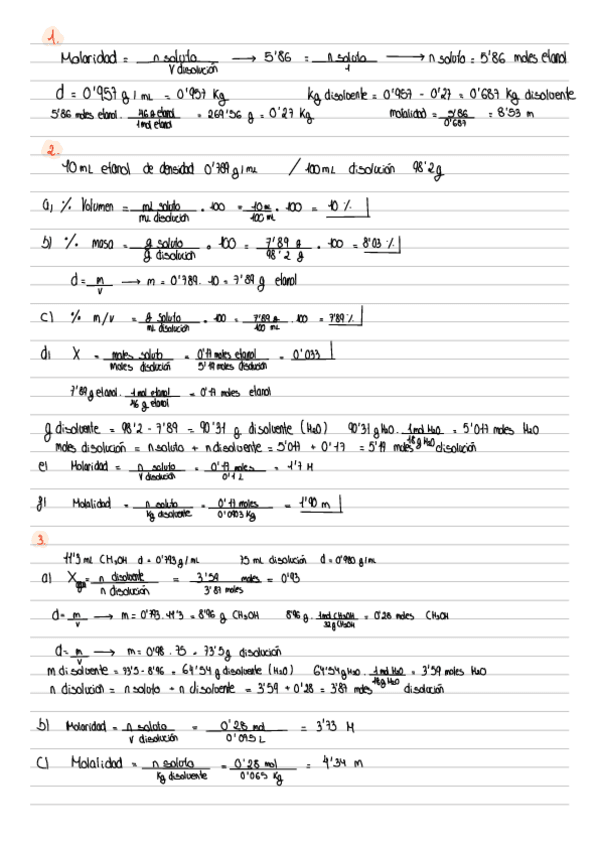 1.
Molaridad = n soluto / V disolución → 5'86 = n soluto / 1 → n soluto = 5'86 moles etanol
d = 0'957 g/mL = 0'957 Kg Kg disolvente = 0'957 - 0'27 = 0'687 Kg disolvente
5'86 moles etanol · 46 g etanol / 1 mol etanol = 269'56 g = 0'27 Kg molalidad = 5'86 / 0'687 = 8'53 m
2.
10 mL etanol de densidad 0'789 g/mL / 100 mL disolución 98'2 g
a) % Volumen = mL soluto / mL disolución · 100 = 10 mL / 100 mL · 100 = 10 %
b) % masa = g soluto / g disolución · 100 = 7'89 g / 98'2 g · 100 = 8'03 %
d = m / v → m = 0'789 · 10 = 7'89 g etanol
c) % m/v = g soluto / mL disolución · 100 = 7'89 g / 100 mL · 100 = 7'89 %
d) X = moles soluto / moles disolución = 0'17 moles etanol / 5'19 moles disolución = 0'033
7'89 g etanol · 1 mol etanol / 46 g etanol = 0'17 moles etanol
g disolvente = 98'2 - 7'89 = 90'31 g disolvente (H2O) 90'31 g H2O · 1 mol H2O / 18 g H2O = 5'017 moles H2O
moles disolución = n soluto + n disolvente = 5'017 + 0'17 = 5'19 moles disolución
e) Molaridad = n soluto / V disolución = 0'17 moles / 0'1 L = 1'7 M
f) Molalidad = n soluto / Kg disolvente = 0'17 moles / 0'0903 Kg = 1'90 m
3.
11'3 mL CH3OH d = 0'793 g/mL 75 mL disolución d = 0'980 g/mL
a) X = n disolvente / n disolución = 3'59 / 3'87 moles moles = 0'93
d = m / v → m = 0'793 · 11'3 = 8'96 g CH3OH 8'96 g · 1 mol CH3OH / 32 g CH3OH = 0'28 moles CH3OH
d = m / v → m = 0'98 · 75 = 73'5 g disolución
m disolvente = 73'5 - 8'96 = 64'54 g disolvente (H2O) 64'54 g H2O · 1 mol H2O / 18 g H2O = 3'59 moles H2O
n disolución = n soluto + n disolvente = 3'59 + 0'28 = 3'87 moles disolución
b) Molaridad = n soluto / V disolución = 0'28 mol / 0'075 L = 3'73 M
c) Molalidad = n soluto / Kg disolvente = 0'28 mol / 0'065 Kg = 4'34 m